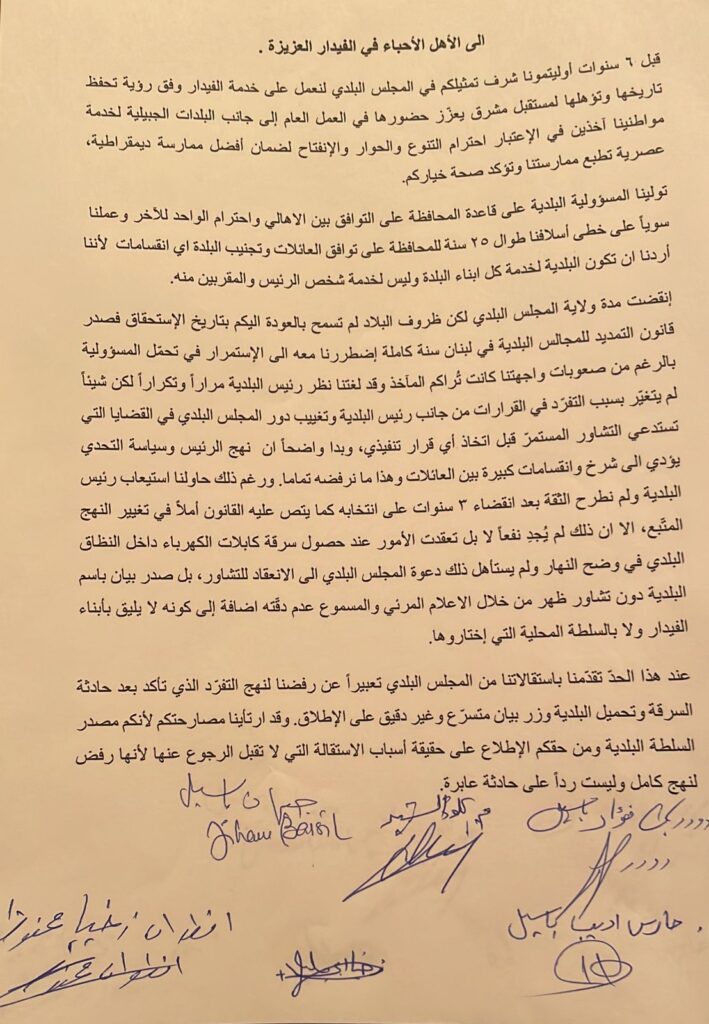 الى الأهل الأحباء في الفيدار العزيزة .
قبل ٦ سنوات أوليتمونا شرف تمثيلكم في المجلس البلدي لنعمل على خدمة الفيدار وفق رؤية تحفظ
تاريخها وتؤهلها لمستقبل مشرق يعزّز حضورها في العمل العام إلى جانب البلدات الجبيلية لخدمة
مواطنينا آخذين في الإعتبار احترام التنوع والحوار والإنفتاح لضمان أفضل ممارسة ديمقراطية،
عصرية تطبع ممارستنا وتؤكد صحة خياركم.
تولينا المسؤولية البلدية على قاعدة المحافظة على التوافق بين الاهالي واحترام الواحد للآخر وعملنا
سوياً على خطى أسلافنا طوال ٢٥ سنة للمحافظة على توافق العائلات وتجنيب البلدة اي انقسامات لأننا
أردنا ان تكون البلدية لخدمة كل ابناء البلدة وليس لخدمة شخص الرئيس والمقربين منه.
إنقضت مدة ولاية المجلس البلدي لكن ظروف البلاد لم تسمح بالعودة اليكم بتاريخ الإستحقاق فصدر
قانون التمديد للمجالس البلدية في لبنان سنة كاملة إضطررنا معه الى الإستمرار في تحمّل المسؤولية
بالرغم من صعوبات واجهتنا كانت تُراكم المآخذ وقد لفتنا نظر رئيس البلدية مراراً وتكراراً لكن شيئاً
لم يتغيّر بسبب التفرّد في القرارات من جانب رئيس البلدية وتغييب دور المجلس البلدي في القضايا التي
تستدعي التشاور المستمرّ قبل اتخاذ أي قرار تنفيذي، وبدا واضحاً ان نهج الرئيس وسياسة التحدي
يؤدي الى شرخ وانقسامات كبيرة بين العائلات وهذا ما نرفضه تماما. ورغم ذلك حاولنا استيعاب رئيس
البلدية ولم نطرح الثقة بعد انقضاء ٣ سنوات على انتخابه كما يتص عليه القانون أملاً في تغيير النهج
المتّبع، الا ان ذلك لم يُجدِ نفعاً لا بل تعقدت الأمور عند حصول سرقة كابلات الكهرباء داخل النظاق
البلدي في وضح النهار ولم يستأهل ذلك دعوة المجلس البلدي الى الانعقاد للتشاور، بل صدر بيان باسم
البلدية دون تشاور ظهر من خلال الاعلام المرئي والمسموع عدم دقّته اضافة إلى كونه لا يليق بأبناء
الفيدار ولا بالسلطة المحلية التي إختاروها.
عند هذا الحدّ تقدّمنا باستقالاتنا من المجلس البلدي تعبيراً عن رفضنا لنهج التفرّد الذي تأكد بعد حادثة
السرقة وتحميل البلدية وزر بيان متسرّع وغير دقيق على الإطلاق. وقد ارتأينا مصارحتكم لأنكم مصدر
السلطة البلدية ومن حقكم الإطلاع على حقيقة أسباب الاستقالة التي لا تقبل الرجوع عنها لأنها رفض
لنهج كامل وليست رداً على حادثة عابرة.
فؤاد باسيل
جيهان باسيل
Jihan Bassil
حارس اديب باسيل